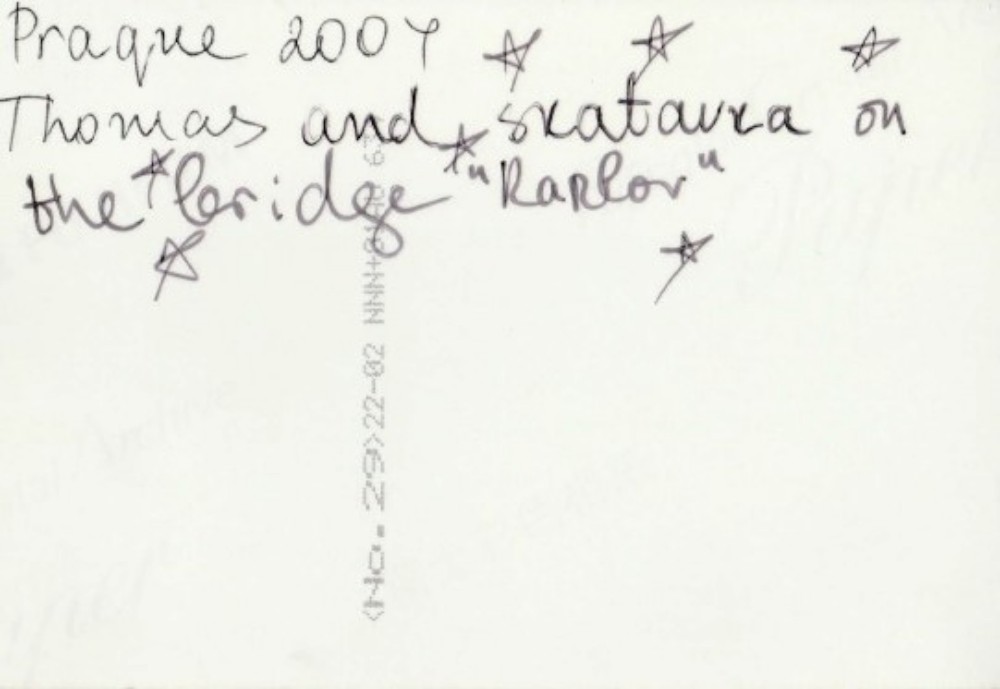 Prague 2004
Thomas and skatavka on
the bridge "Karlov"
<No. 29>22-02